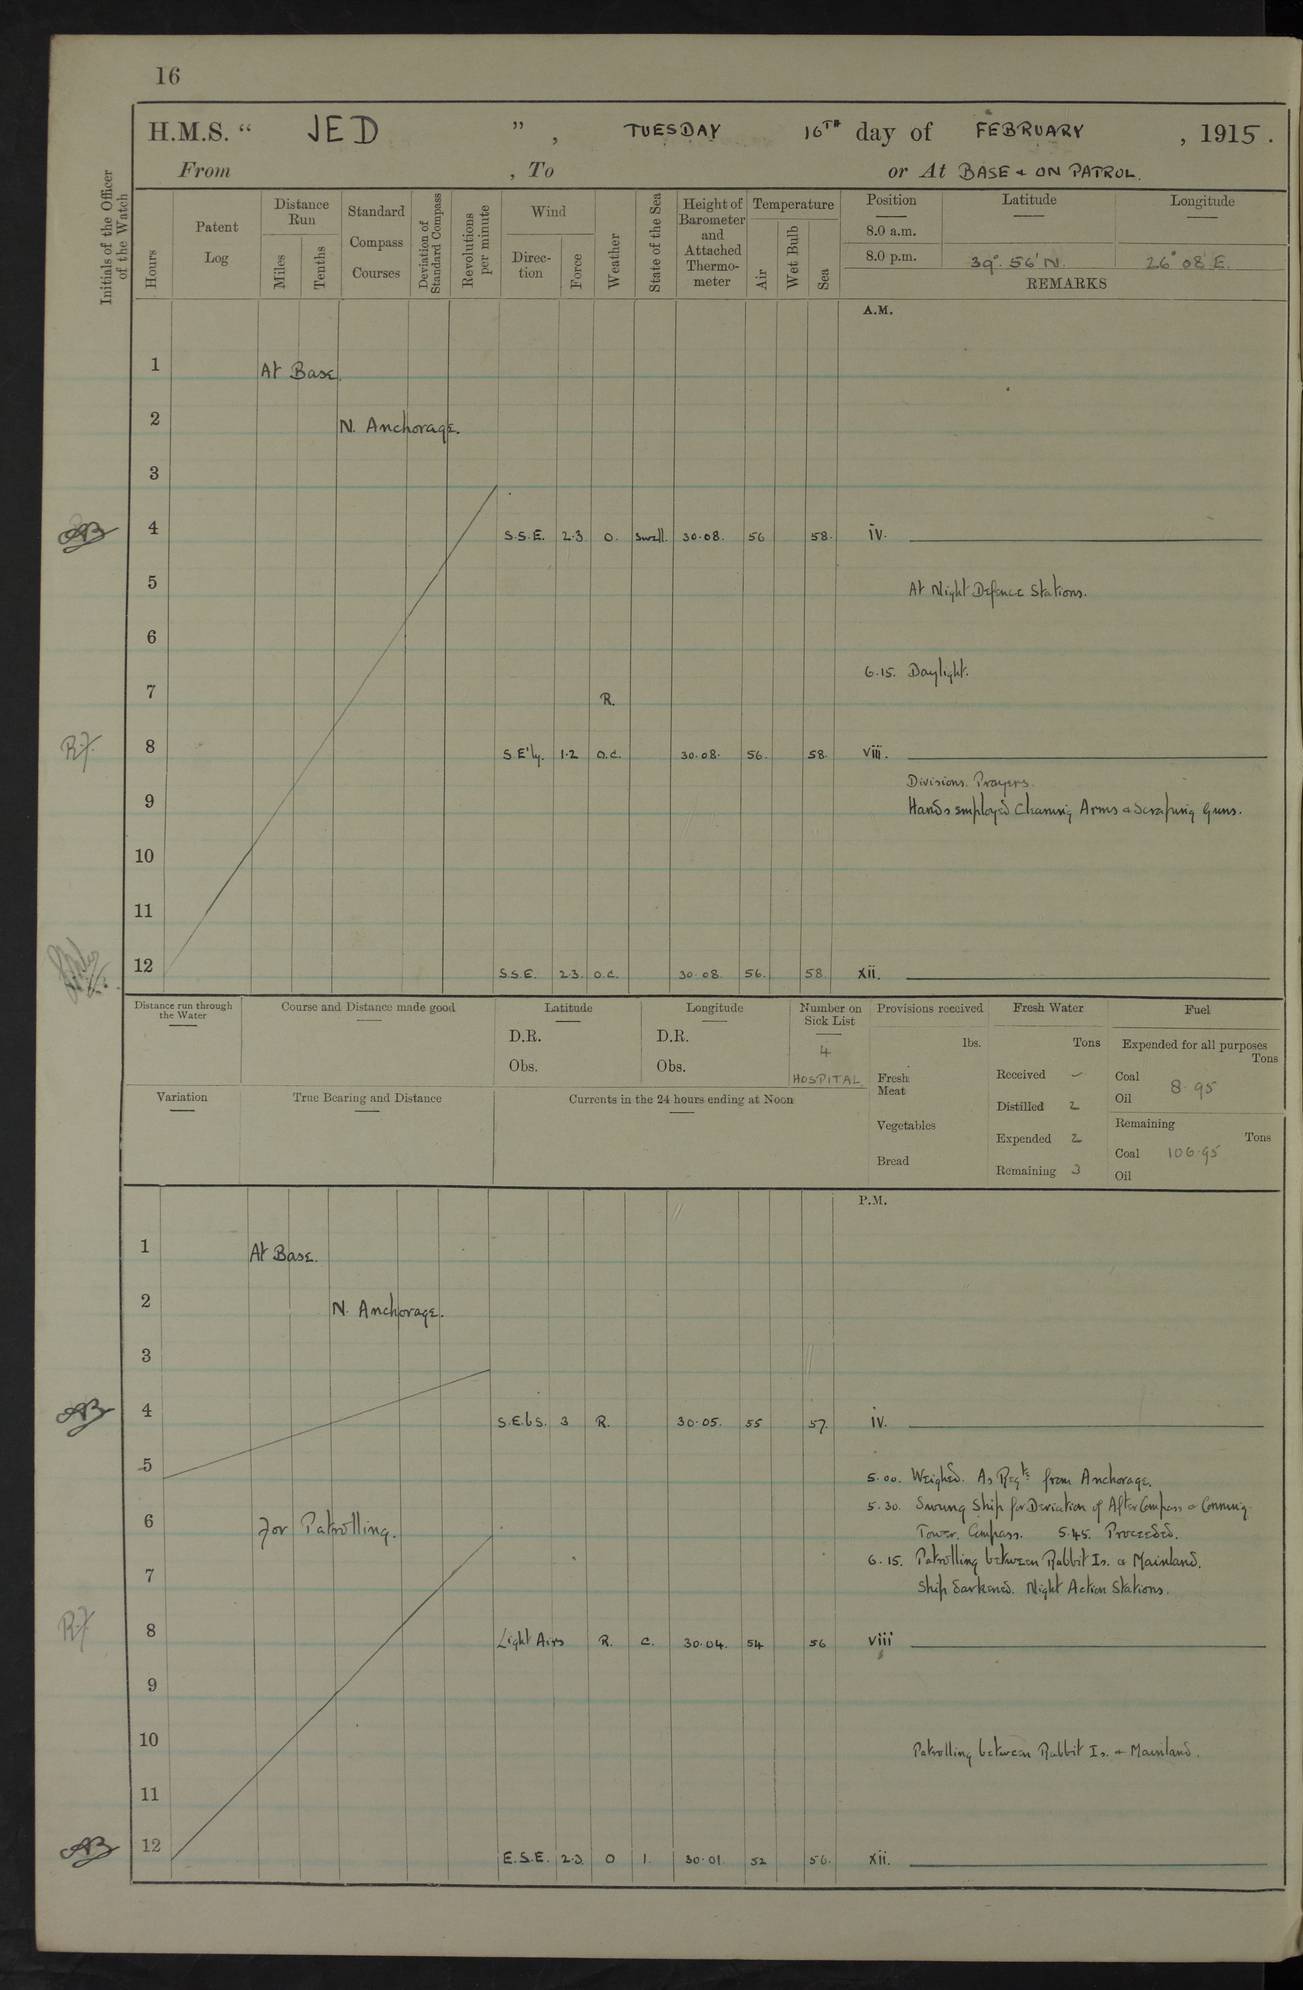 16
H.M.S. “ JED ” , TUESDAY 16TH day of FEBRUARY , 1915.
From , To or At BASE & ON PATROL.
Initials of the Officer of the Watch
Hours
Patent Log
Distance Run
Miles
Tenths
Standard Compass Courses
Deviation of Standard Compass
Revolutions per minute
Wind
Direction
Force
Weather
State of the Sea
Height of Barometer and Attached Thermometer
Temperature
Air
Wet Bulb
Sea
Position Latitude Longitude
8.0 a.m.
8.0 p.m. 39° 56' N. 26° 08' E.
REMARKS
A.M.
1 At Base.
2 N. Anchorage.
3
4 S.S.E. 2.3 O. Swell. 30.08. 56 58. iv.
5 At Night Defence Stations.
6
6.15. Daylight.
7 R.
8 S.E'ly. 1.2 O.C. 30.08. 56. 58. viii.
Divisions. Prayers.
9 Hands employed Cleaning Arms & Scraping Guns.
10
11
12 S.S.E. 2.3. O.C. 30.08 56. 58. xii.
Distance run through the Water
Course and Distance made good
Latitude
D.R.
Obs.
Longitude
D.R.
Obs.
Number on Sick List
4
HOSPITAL
Provisions received
lbs.
Fresh Meat
Vegetables
Bread
Fresh Water
Tons
Received –
Distilled 2
Expended 2
Remaining 3
Fuel
Expended for all purposes
Tons
Coal 8.95
Oil
Remaining
Tons
Coal 106.95
Oil
Variation
True Bearing and Distance
Currents in the 24 hours ending at Noon
P.M.
1 At Base.
2 N. Anchorage.
3
4 S.E.b S. 3 R. 30.05. 55 57. iv.
5 5.00. Weighed. As Reqte from Anchorage.
5.30. Swung Ship for Deviation of After Compass & Conning
6 For Patrolling. Tower. Compass. 5.45. Proceeded.
6.15. Patrolling between Rabbit Is. & Mainland.
7 Ship darkened. Night Action Stations.
8 Light Airs R. C. 30.04. 54 56 viii
9
10 Patrolling between Rabbit Is. & Mainland.
11
12 E.S.E. 2.3. O 1. 30.01 52 56. xii.